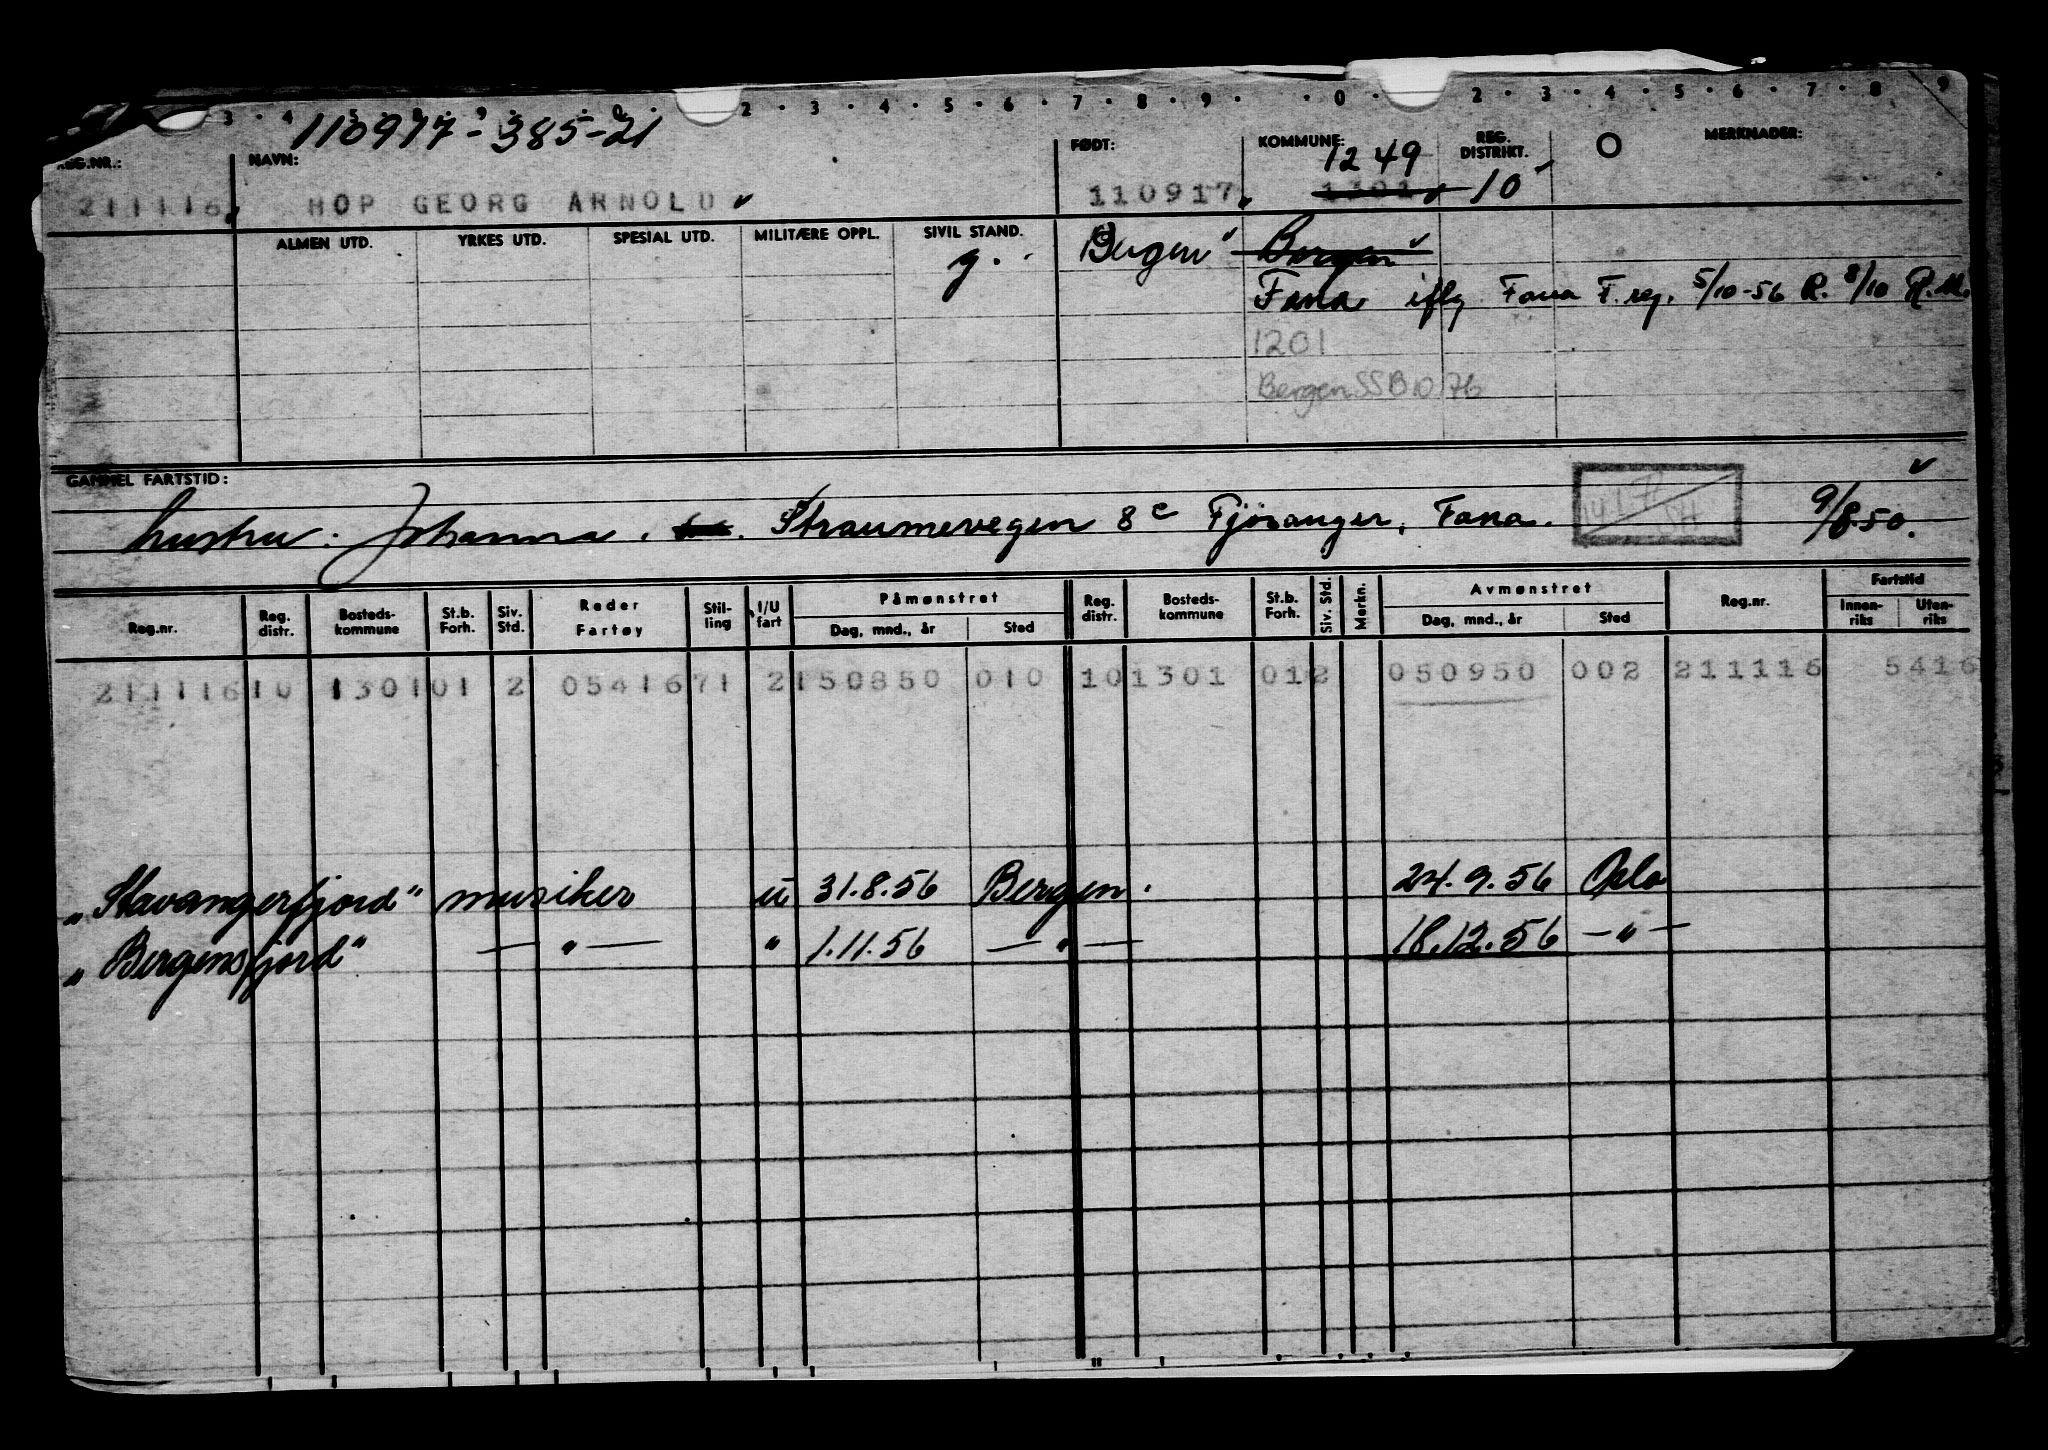 3 · 4 · 5 · 7 · 9 · 2 · 3 · 4 · 5 · 6 · 7 · 8 · 9 · 0 · 2 · 3 · 4 · 5 · 6 · 7 · 8 9
110917-385-21
REG.NR.: NAVN: FØDT: KOMMUNE: REG. DISTRIKT. MERKNADER:
1249
211116 HOP GEORG ARNOLD 110917 1301 10
ALMEN UTD. YRKES UTD. SPESIAL UTD. MILITÆRE OPPL. SIVIL STAND.
g. Bergen Bergen
Fana iflg Fana F.reg. 5/10-56 R. 8/10 R.M.
1201
Bergen SSB 10 76
GAMMEL FARTSTID:
hustru: Johanna. Straumevegen 8c Fjøsanger, Fana. 9/8.50.
Reg.nr. Reg. distr. Bosteds-kommune St.b. Forh. Siv. Std. Reder Fartøy Stil-ling I/U fart Påmønstret Dag, mnd., år Sted Reg. distr. Bosteds-kommune St.b. Forh. Siv. Std. Merkn. Avmønstret Dag, mnd., år Sted Reg.nr. Fartstid Innen-riks Uten-riks
211116 10 1301 01 2 054167 1 2 150850 010 10 1301 01 2 050950 002 211116 5416
„Stavangerfjord" musiker u 31.8.56 Bergen. 24.9.56 Oslo
„Bergensfjord" — " — " 1.11.56 — " — 18.12.56 — " —